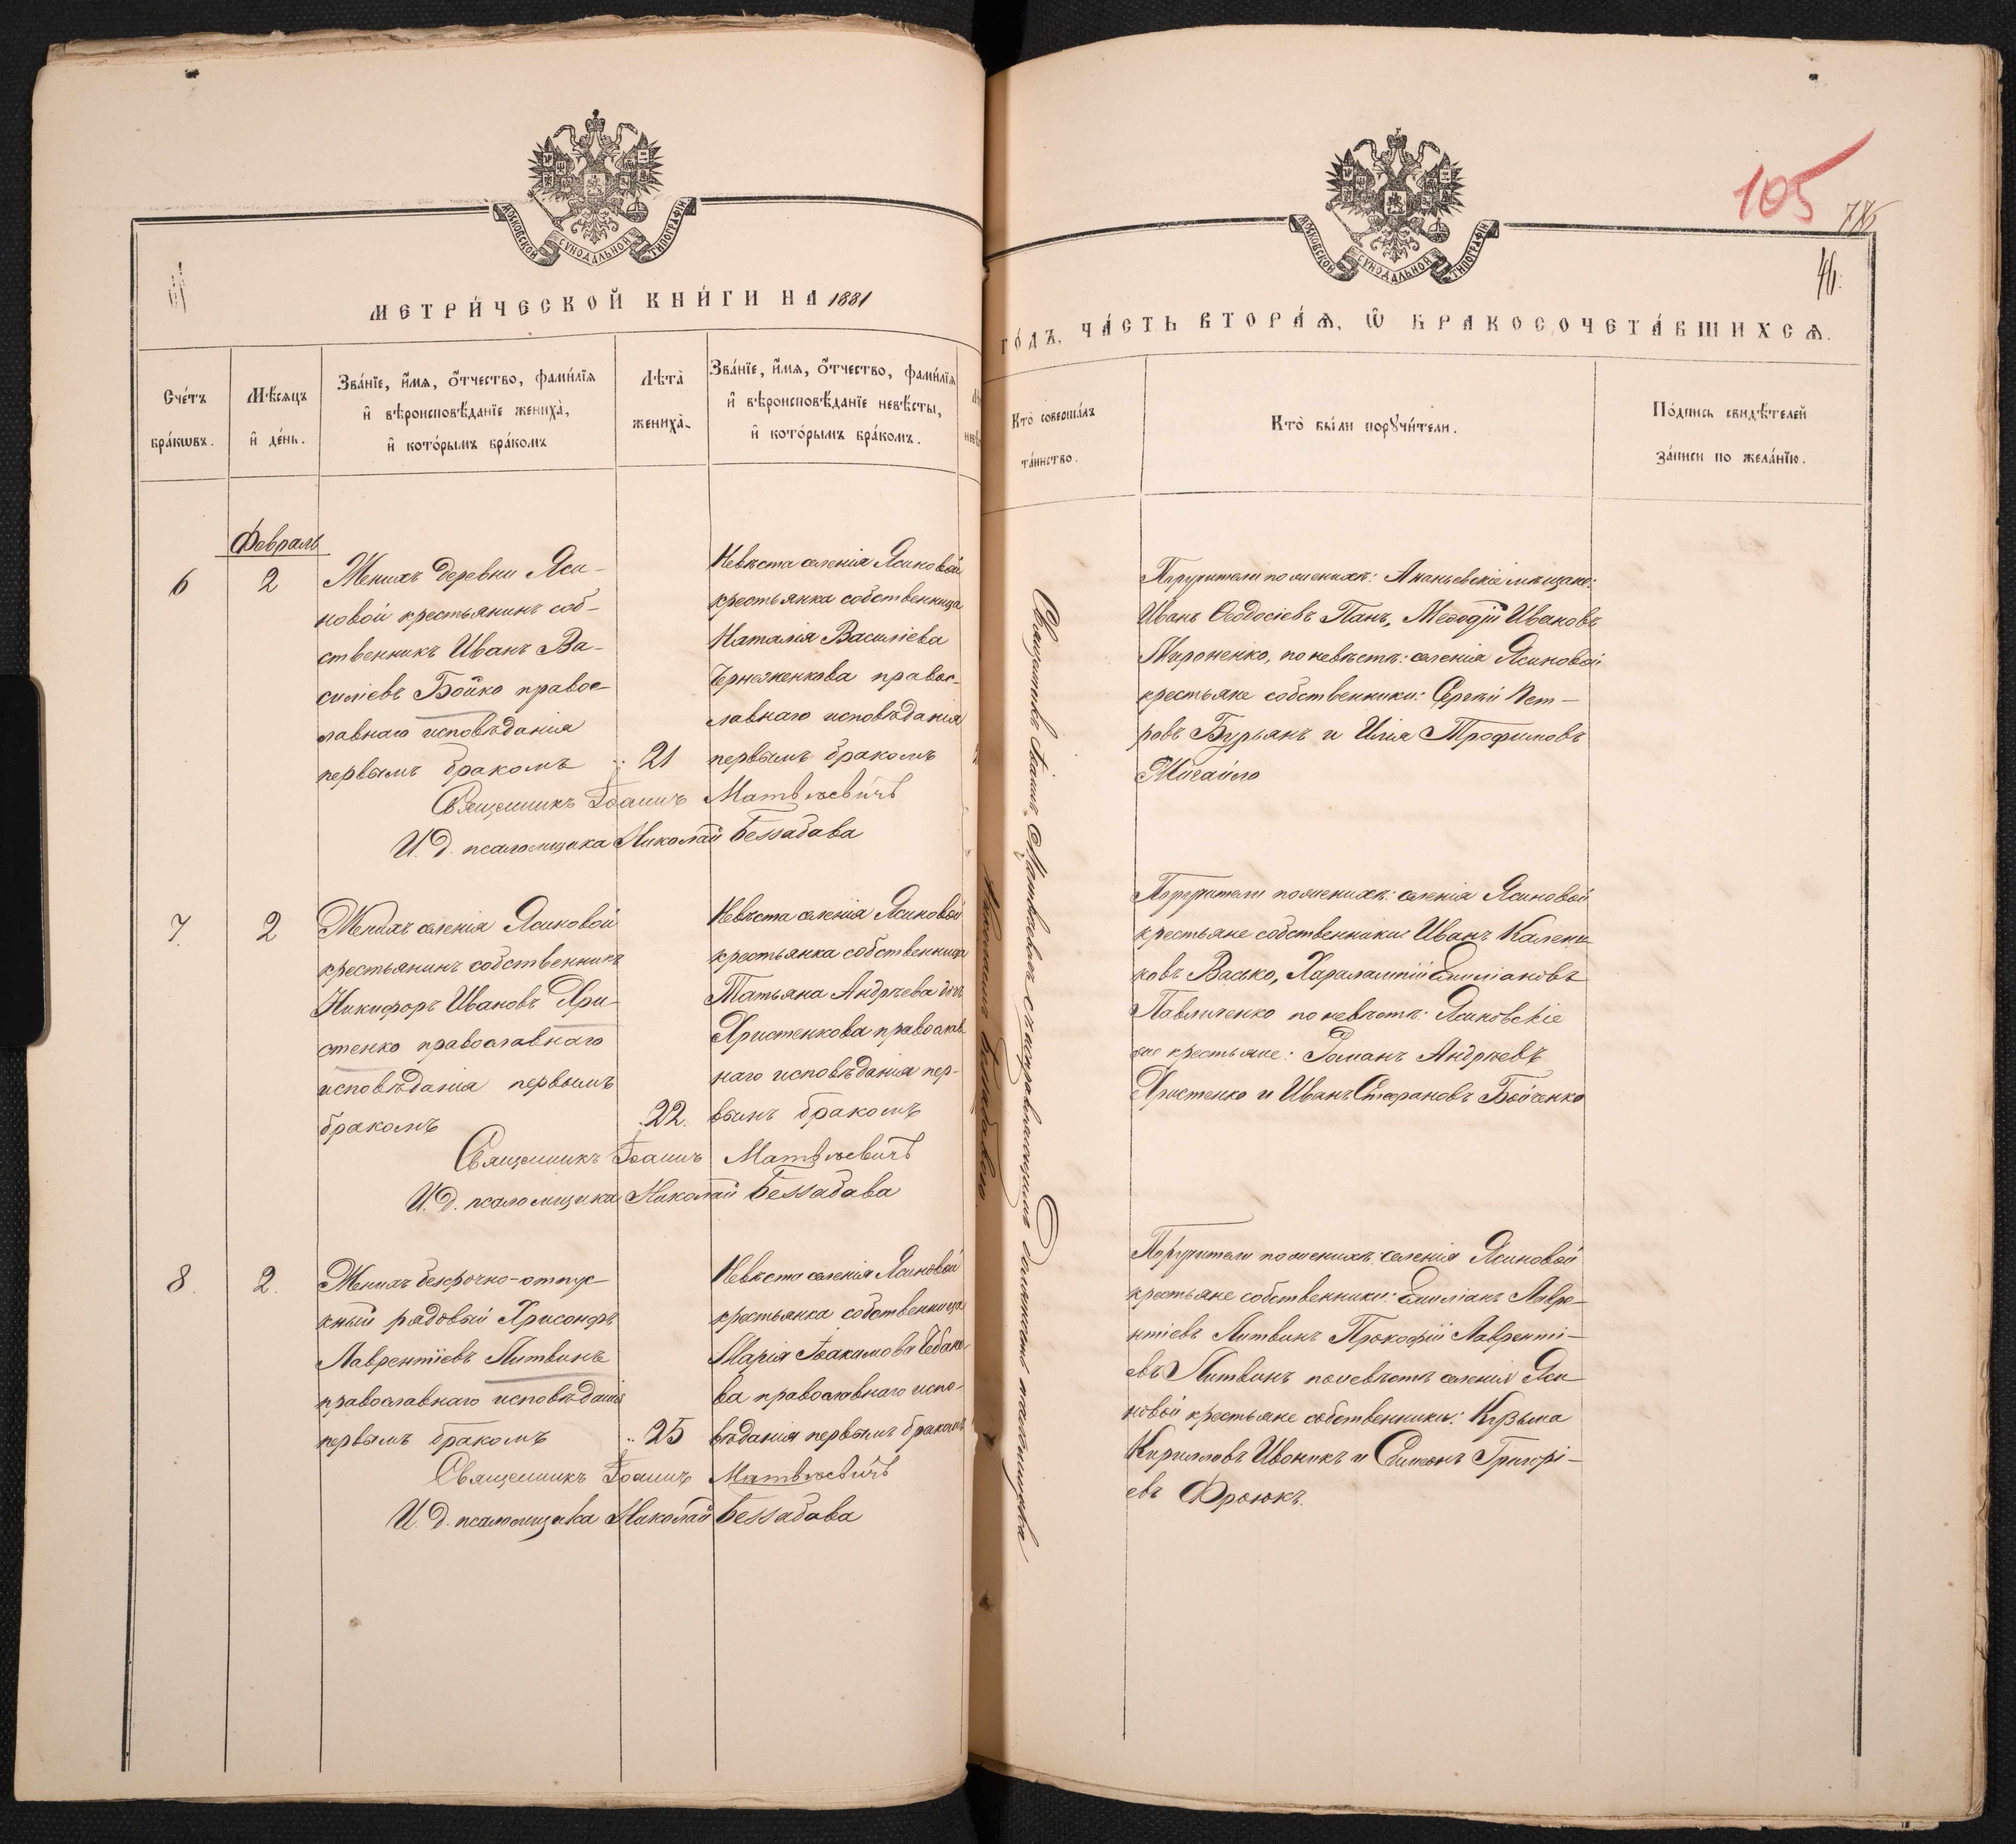 МОСКОВСКОЙ СУНОДАЛЬНОЙ ТИПОГРАФІИ
МЕТРИ́ЧЕСКОЙ КНИ́ГИ НА 1881
Сче́тъ бра́кѡвъ.
Мѣ́сяцъ и҆ де́нь.
Зва́нїе, и҆́мѧ, ѻ҆́тчество, фами́лїѧ
и҆ вѣроисповѣ́данїе жениха̀,
и҆ кото́рымъ бра́комъ
Лѣта̀
жениха̀.
Зва́нїе, и҆́мѧ, ѻ҆́тчество, фами́лїѧ
и҆ вѣроисповѣ́данїе невѣ́сты,
и҆ кото́рымъ бра́комъ.
Февраль
6
2
Женихъ деревни Яси-
новой крестьянинъ соб-
ственникъ Иванъ Ва-
силіевъ Бойко правос-
лавнаго исповѣданія
первымъ бракомъ
21
Невѣста селенія Ясиновой
крестьянка собственница
Наталія Василіева
правос-
лавнаго исповѣданія
первымъ бракомъ
Священникъ Іоаннъ Матвѣевичъ
И. д. псаломщика Николай Бессабава
7.
2
Женихъ селенія Ясиновой
крестьянинъ собственникъ
Никифоръ Ивановъ Хри-
стенко православнаго
исповѣданія первымъ
бракомъ
22.
Невѣста селенія Ясиновой
крестьянка собственница
Татьяна Андрѣева дочь
Христенкова православ
наго исповѣданія пер-
вымъ бракомъ
Священникъ Іоаннъ Матвѣевичъ
И. д. псаломщика Николай Бессабава
8.
2.
Женихъ безсрочно-отпус
кный рядовый Хрисанфъ
Лаврентіевъ Литвинъ
православнаго исповѣданія
первымъ бракомъ
25
Невѣста селенія Ясиновой
крестьянка собственница
Марія Іоакимова Чебано-
ва православнаго испо-
вѣданія первымъ бракомъ
Священникъ Іоаннъ Матвѣевичъ
И. д. псаломщика Николай Бессабава
МОСКОВСКОЙ СУНОДАЛЬНОЙ ТИПОГРАФІИ
105
46.
ГО́ДЪ, ЧА́СТЬ ВТОРА́Ѧ, Ѽ БРАКОСОЧЕТА́ВШИХСѦ.
Кто̀ соверша́лъ
та́инство.
Кто̀ бы́ли порꙋчи́тели.
По́дпись свидѣ́телей
за́писи по жела́нїю.
Священникъ Іоаннъ Матвѣевичъ съ исправляющимъ должность псаломщика
Николаемъ Бессабавою
Поручители по женихѣ: Ананьевскіе мѣщане:
Иванъ Ѳеодосіевъ Панъ, Меѳодій Ивановъ
Мироненко, по невѣстѣ: селенія Ясиновой
крестьяне собственники: Сергій Пет-
ровъ Бурьянъ и Илія Трофимовъ
Поручители по женихѣ: селенія Ясиновой
крестьяне собственники: Иванъ Калени-
ковъ Васько, Харалампій Емиліановъ
Павличенко по невѣстѣ: Ясиновскіе
же крестьяне: Романъ Андрѣевъ
Христенко и Иванъ Стефановъ Бойченко
Поручители по женихѣ: селенія Ясиновой
крестьяне собственники: Емиліанъ Лавре-
нтіевъ Литвинъ Прокофій Лавренті-
евъ Литвинъ по невѣстѣ селенія Яси
новой крестьяне собственники: Кузьма
Кирилловъ Ивоникъ и Симеонъ Григорі-
евъ Фроюкъ.